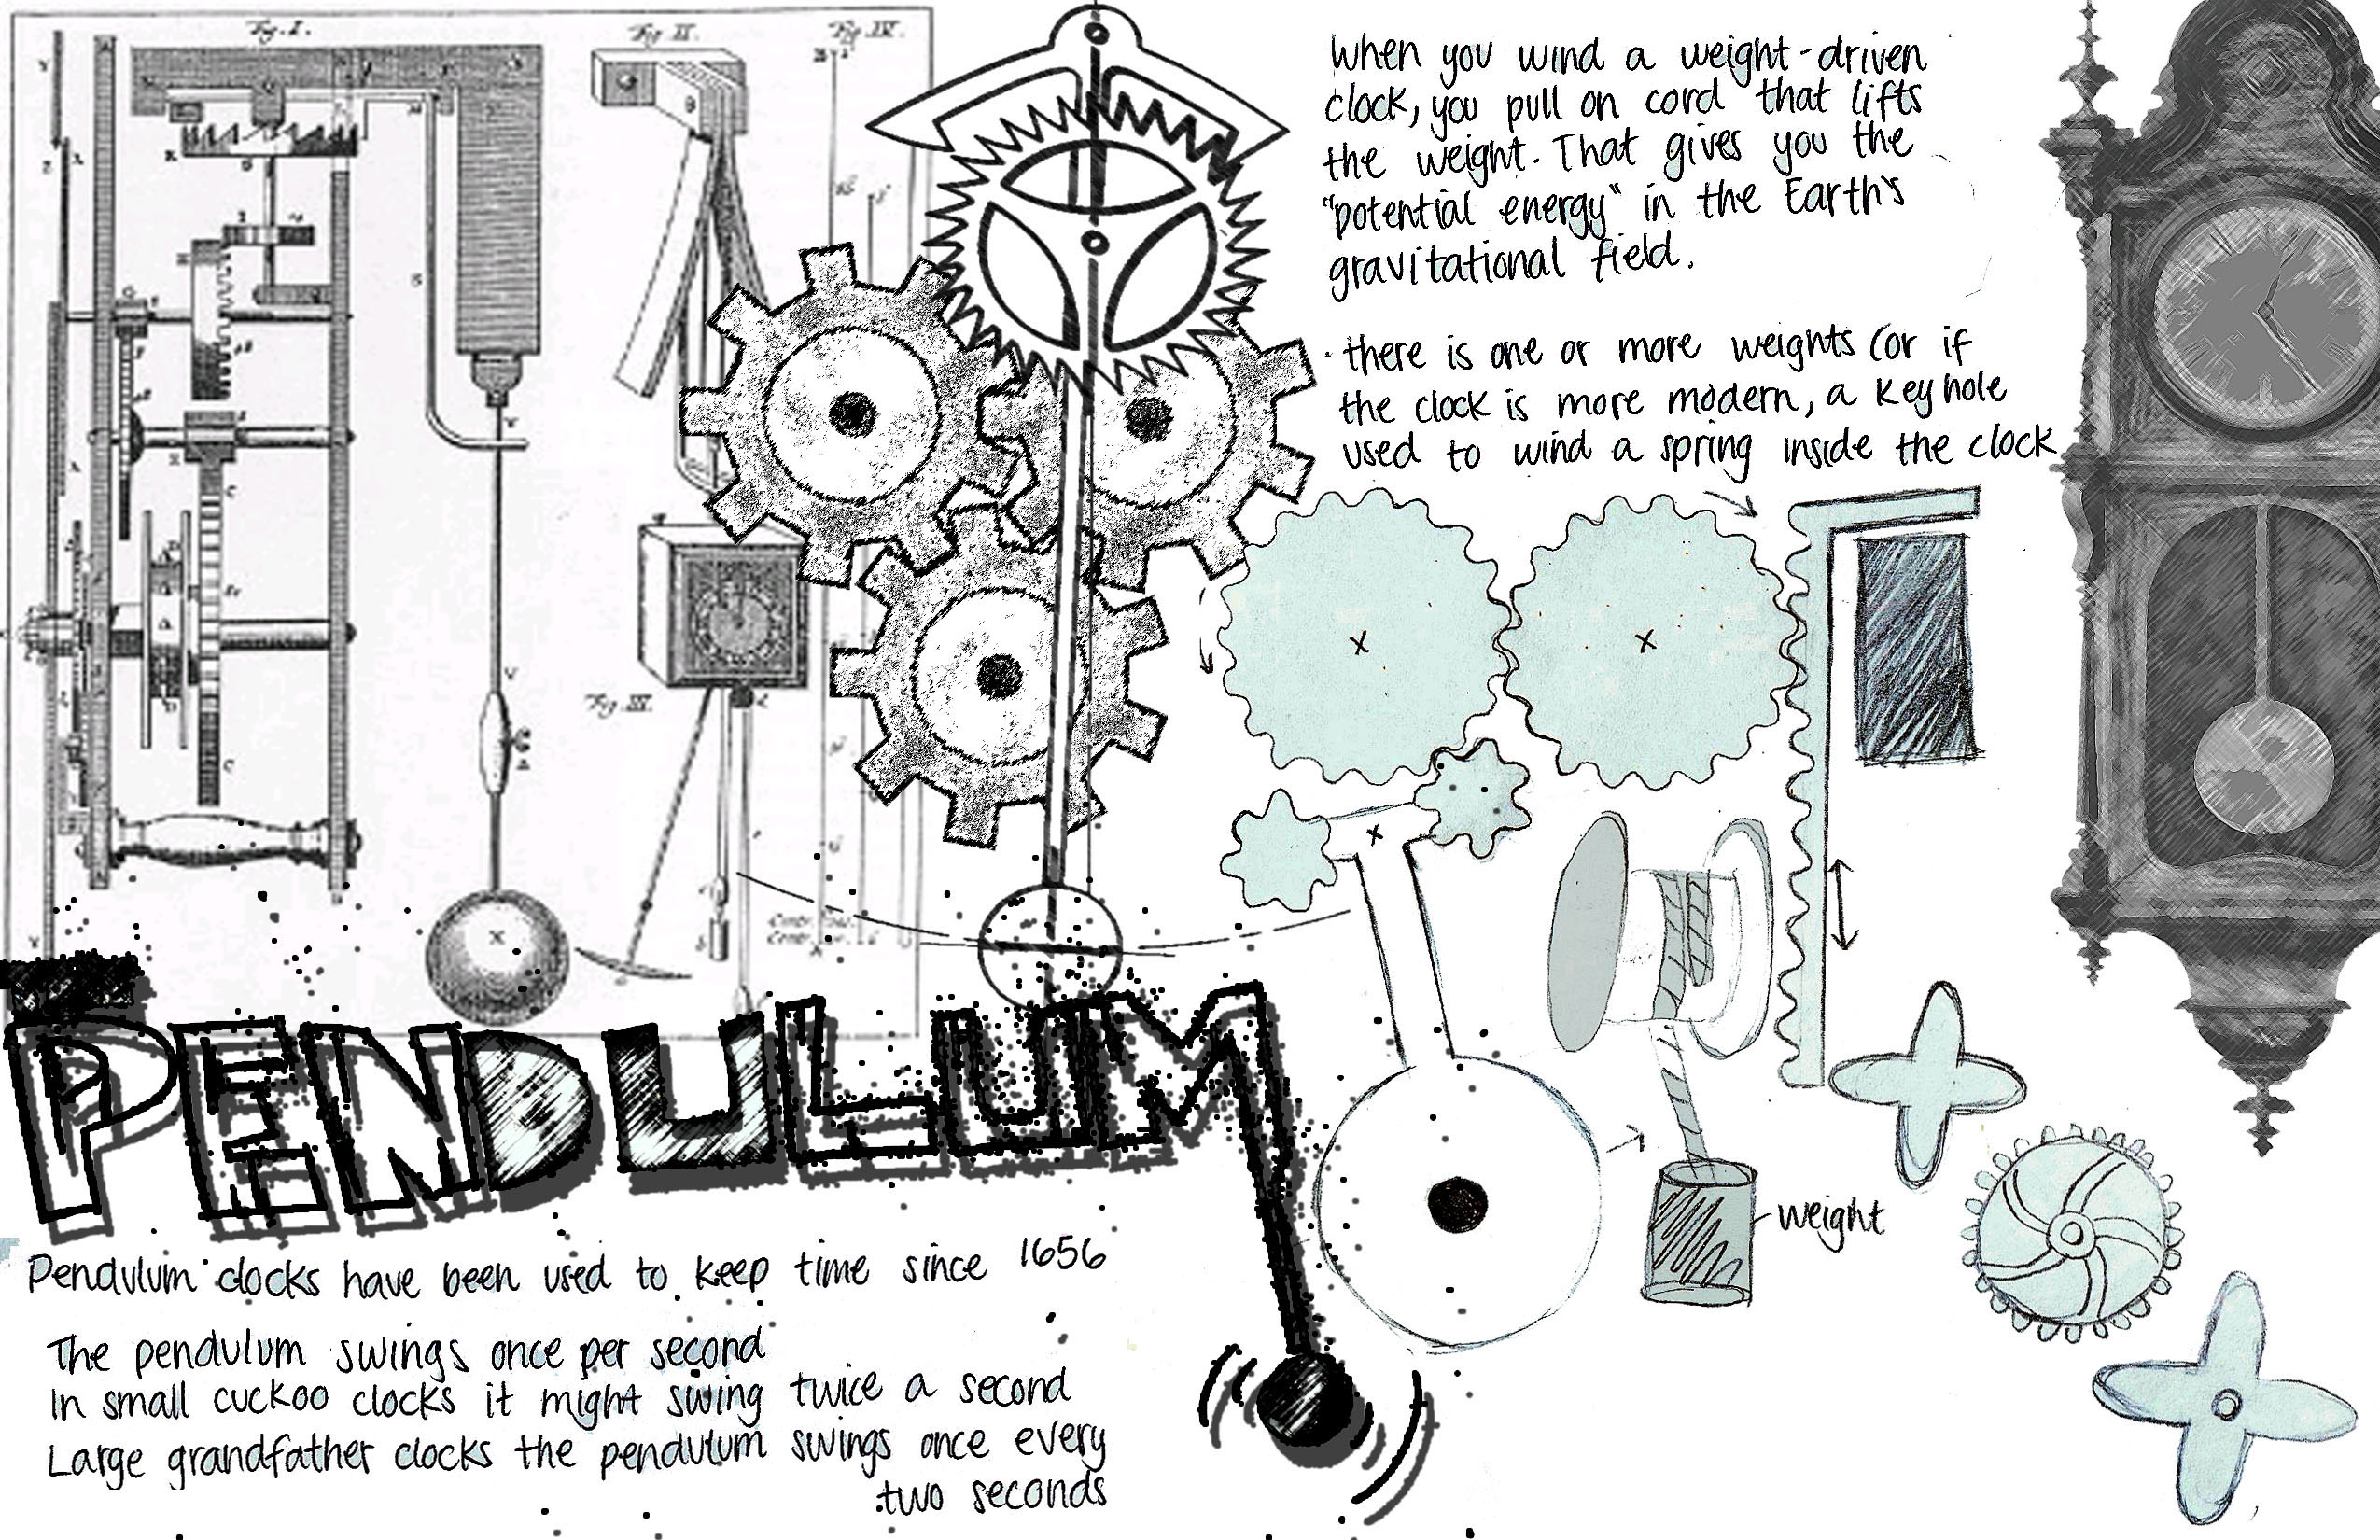 Fig. I.
Fig. II.
Fig. IV.
When you wind a weight-driven
clock, you pull on cord that lifts
the weight. That gives you the
"potential energy" in the Earth's
gravitational field.
· there is one or more weights (or if
the clock is more modern, a key hole
used to wind a spring inside the clock
Fig. III.
PENDULUM
weight
Pendulum clocks have been used to keep time since 1656
The pendulum swings once per second
In small cuckoo clocks it might swing twice a second
Large grandfather clocks the pendulum swings once every
two seconds